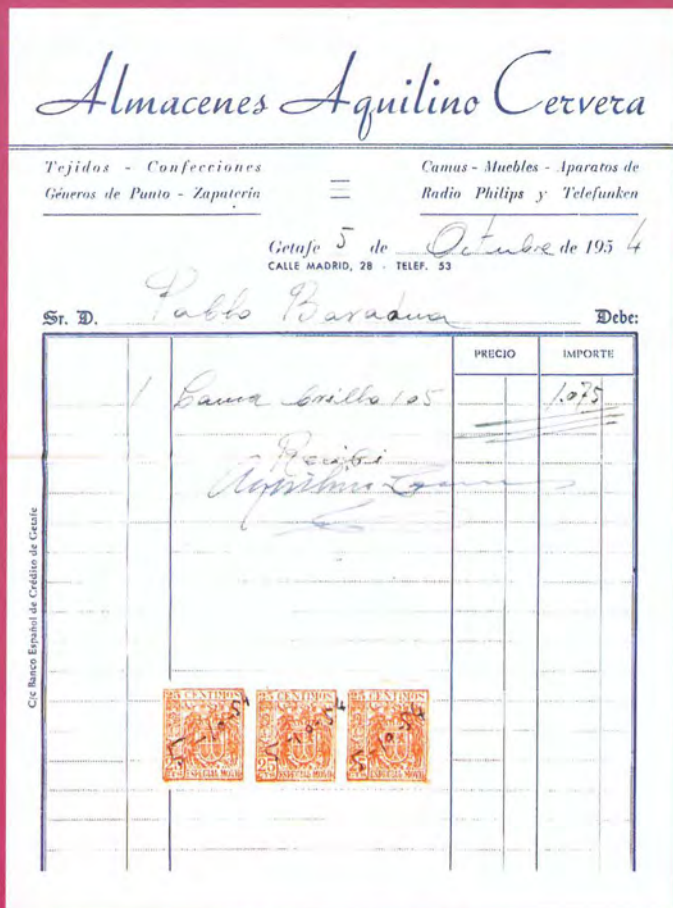 Almacenes Aquilino Cervera
Tejidos - Confecciones
Géneros de Punto - Zapatería
Camas - Muebles - Aparatos de
Radio Philips y Telefunken
Getafe 5 de Octubre de 1954
CALLE MADRID, 28 - TELEF. 53
Sr. D. Pablo Debe:
PRECIO IMPORTE
1 Cama 105 1.075
Recibí
Aquilino
C/c Banco Español de Crédito de Getafe
25 CENTIMOS 25 CENTIMOS 25 CENTIMOS
5-10-54 5-10-54 5-10-54
25 ESPECIAL MOVIL 25 ESPECIAL MOVIL 25 ESPECIAL MOVIL